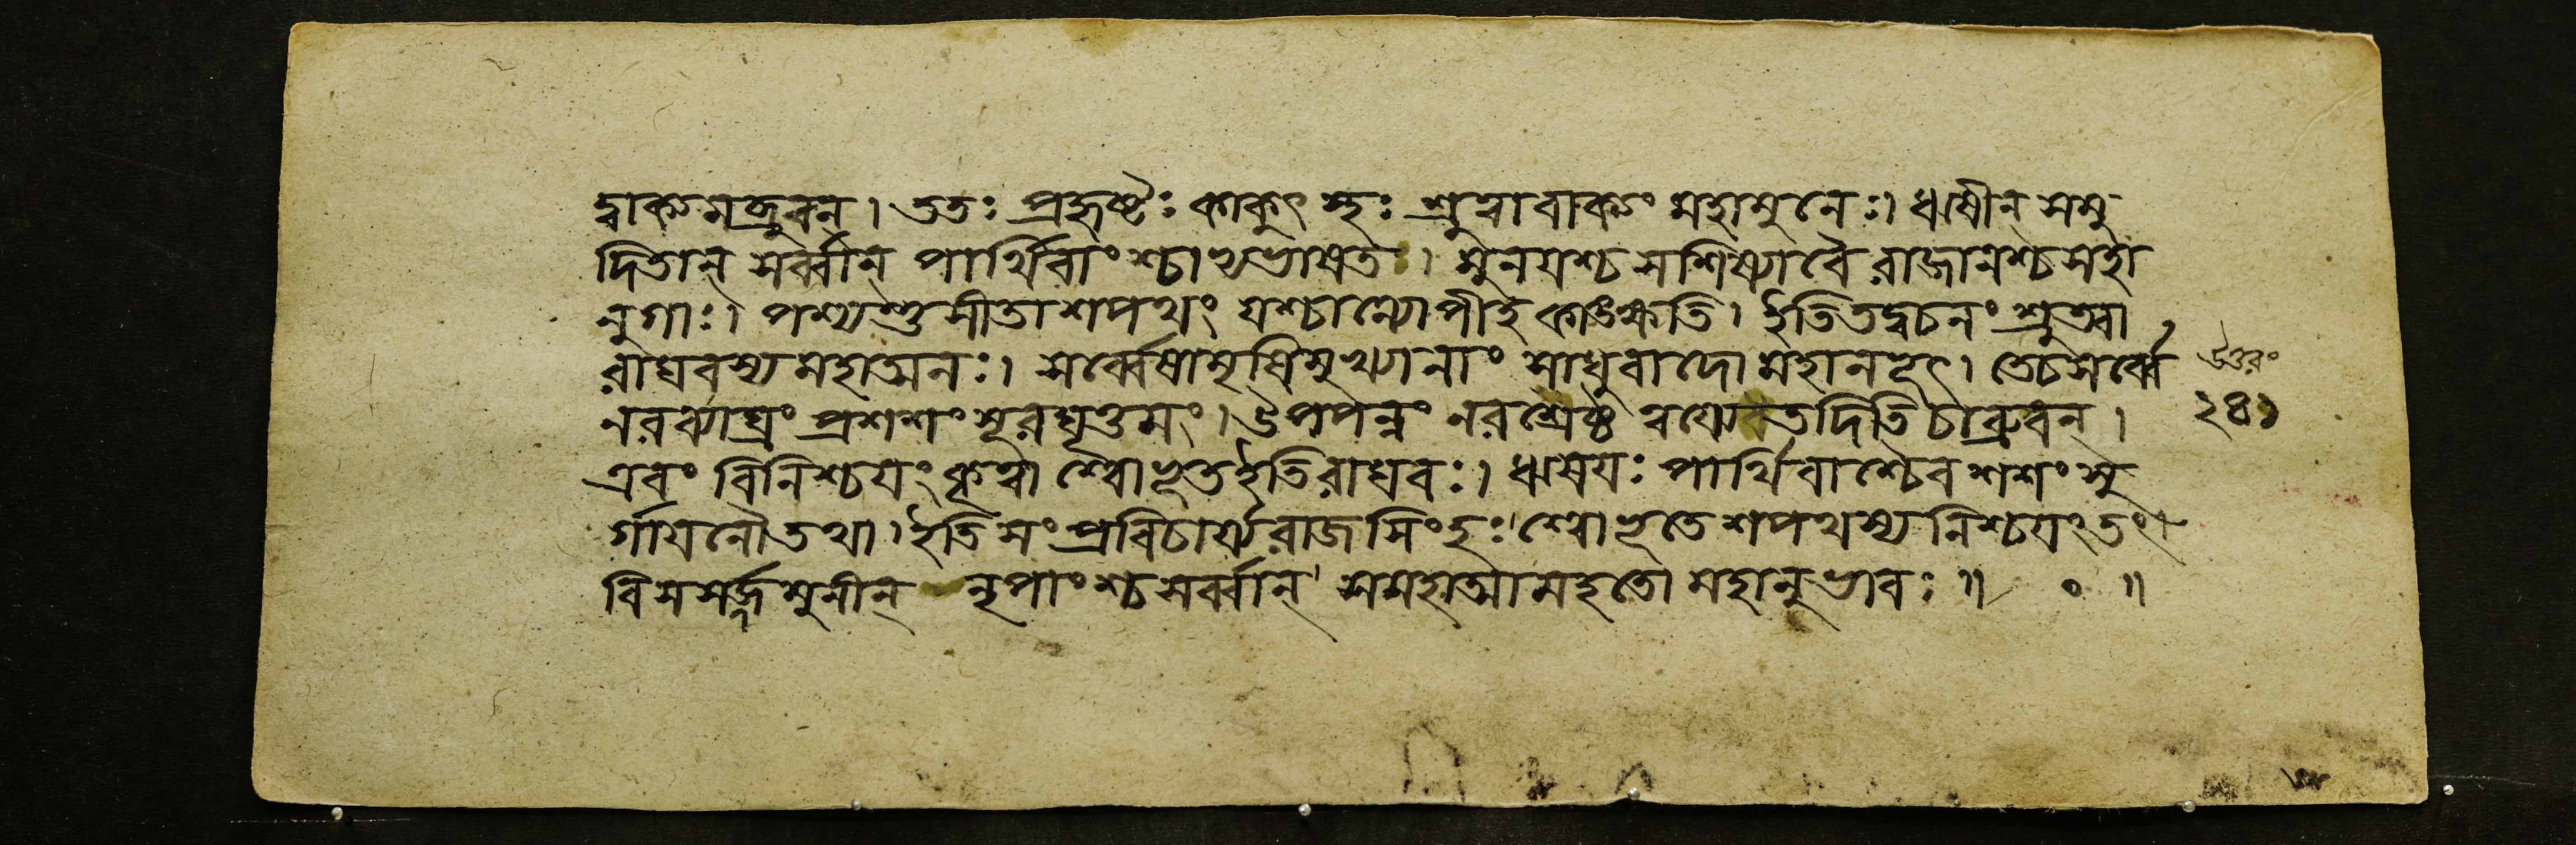 দ্বাক্যমব্রুবন্। ততঃ প্রহৃষ্টঃ কাকুৎস্থঃ শ্রুত্বাবাক্যং মহামুনেঃ। ঋষীন্ সমু
দিতান্ সর্ব্বান্ পার্থিবাংশ্চাভ্যভাষত। মুনয়শ্চ সশিষ্যাবৈ রাজানশ্চসহা
নুগাঃ। পশ্যন্তুসীতাশপথং যশ্চান্যোপীহকাঙক্ষতি। ইতিতদ্বচনং শ্রুত্বা
রাঘবস্য মহাত্মনঃ। সর্ব্বেষামৃষিমুখ্যানাং সাধুবাদো মহানভূৎ। তেচসর্ব্বে
নরব্যাঘ্রং প্রশশংসূরঘূত্তমং। উপপন্নং নরশ্রেষ্ঠ ত্বয্যেবতদিতিচাব্রুবন্।
এবং বিনিশ্চয়ংকৃত্বা শ্বোভূতইতিরাঘবঃ। ঋষয়ঃ পার্থিবাশ্চৈব শশংসু
র্গায়নৌতথা। ইতি সংপ্রবিচার্য্যরাজসিংহঃ শ্বোভূতে শপথস্য নিশ্চয়ংতং।
বিসসর্জ্জমুনীন্ নৃপাংশ্চসর্ব্বান্ সমহাত্মামহতো মহানুভাবঃ॥ ০ ॥
উত্তরং
২৪১